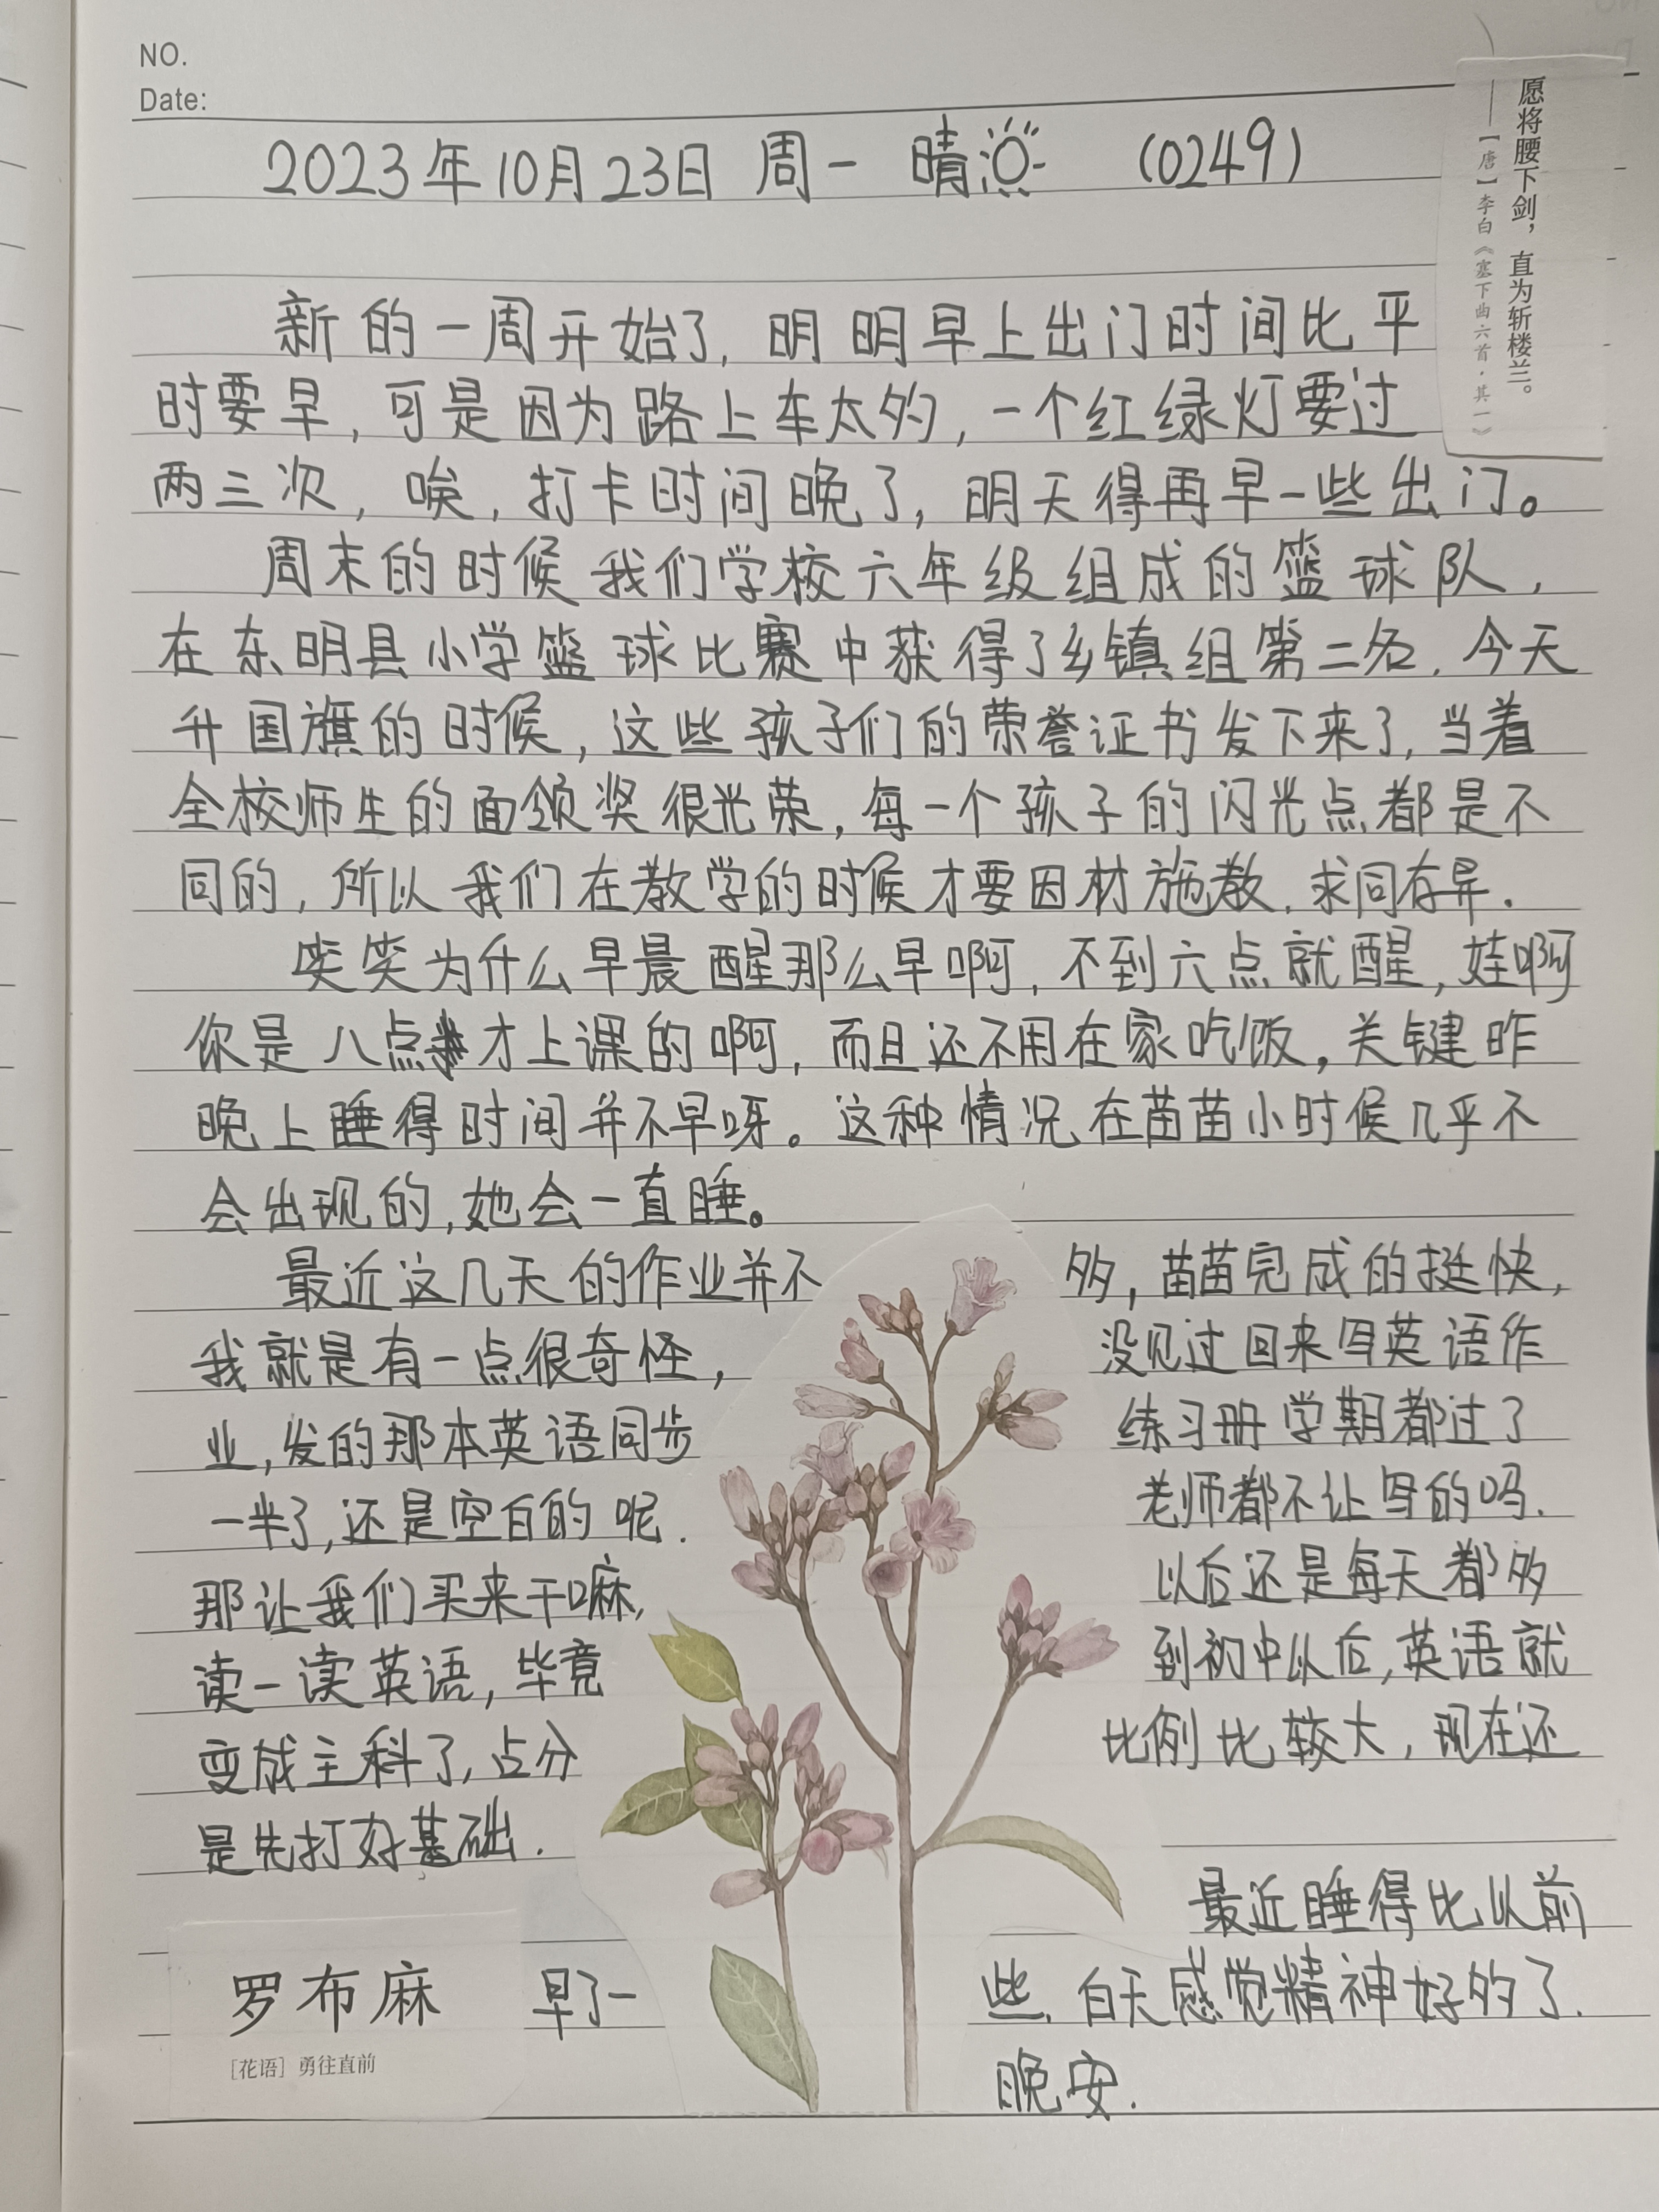 NO.
Date:
2023年10月23日 周一 晴 (0249)
愿将腰下剑，直为斩楼兰。
——【唐】李白《塞下曲六首·其一》
新的一周开始了，明明早上出门时间比平
时要早，可是因为路上车太多，一个红绿灯要过
两三次，唉，打卡时间晚了，明天得再早一些出门。
周末的时候我们学校六年级组成的篮球队，
在东明县小学篮球比赛中获得了乡镇组第二名.今天
升国旗的时候，这些孩子们的荣誉证书发下来了，当着
全校师生的面领奖很光荣，每一个孩子的闪光点都是不
同的，所以我们在教学的时候才要因材施教.求同存异.
笑笑为什么早晨醒那么早啊，不到六点就醒，娃啊
你是八点才上课的啊，而且还不用在家吃饭，关键昨
晚上睡得时间并不早呀。这种情况在苗苗小时候几乎不
会出现的，她会一直睡。
最近这几天的作业并不多，苗苗完成的挺快，
我就是有一点很奇怪，没见过回来写英语作
业，发的那本英语同步练习册学期都过了
一半了，还是空白的呢.老师都不让写的吗.
那让我们买来干嘛，以后还是每天都多
读一读英语，毕竟到初中以后，英语就
变成主科了，占分比例比较大，现在还
是先打好基础.
最近睡得比以前
早了一些.白天感觉精神好多了.
晚安.
罗布麻
［花语］勇往直前